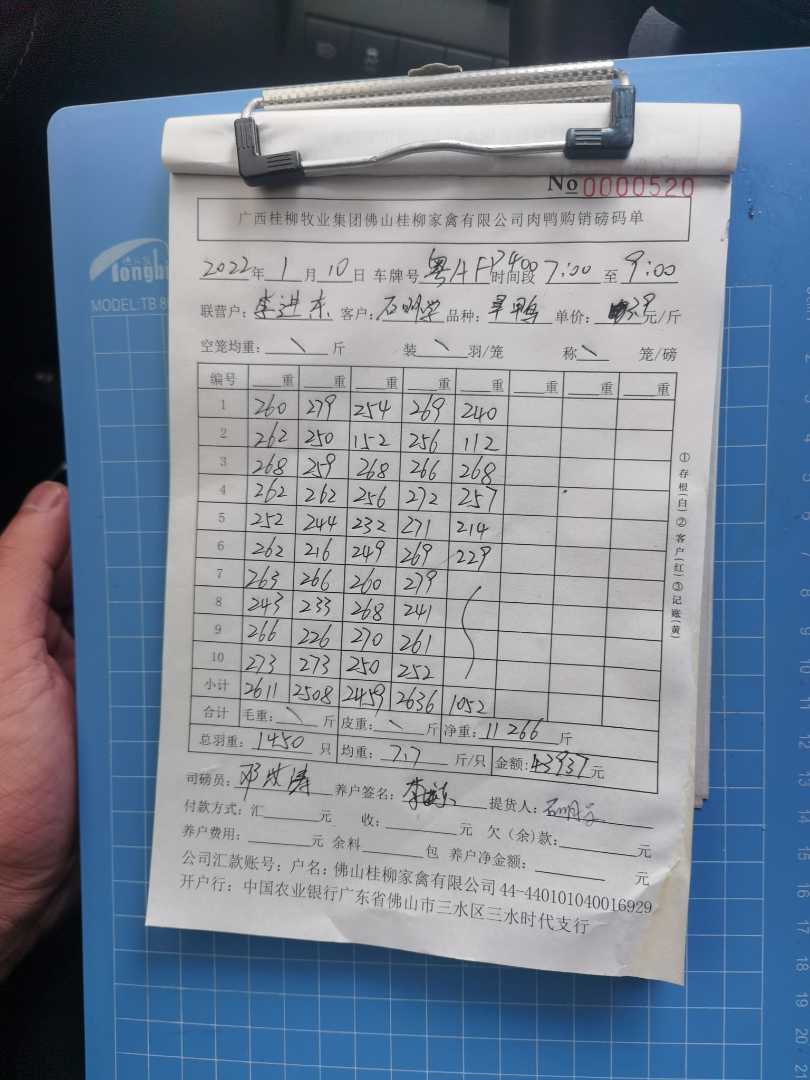 No 0000520
广西桂柳牧业集团佛山桂柳家禽有限公司肉鸭购销磅码单
2022年 1月 10日 车牌号 粤AFP7400 时间段 7:00 至 9:00
联营户: 李进东 客户: 石明学 品种: 旱鸭 单价: 3.9 元/斤
空笼均重: \ 斤 装 \ 羽/笼 称 \ 笼/磅
编号 重 重 重 重 重 重 重 重
1 260 279 254 269 240
2 262 250 152 256 112
3 268 259 268 266 268
4 262 262 256 272 257
5 252 244 232 271 214
6 262 216 249 269 229
7 263 266 260 279
8 243 233 268 241
9 266 226 270 261
10 273 273 250 252
小计 2611 2508 2459 2636 1052
合计 毛重: \ 斤 皮重: \ 斤 净重: 11266 斤
总羽重: 1450 只 均重: 7.7 斤/只 金额: 43937 元
司磅员: 邓 涛 养户签名: 李进东 提货人: 石明学
付款方式: 汇 元 收: 元 欠(余)款: 元
养户费用: 元 余料 包 养户净金额: 元
公司汇款账号: 户名: 佛山桂柳家禽有限公司 44-440101040016929
开户行: 中国农业银行广东省佛山市三水区三水时代支行
①存根(白)②客户(红)③记账(黄)
MODEL:TB 8